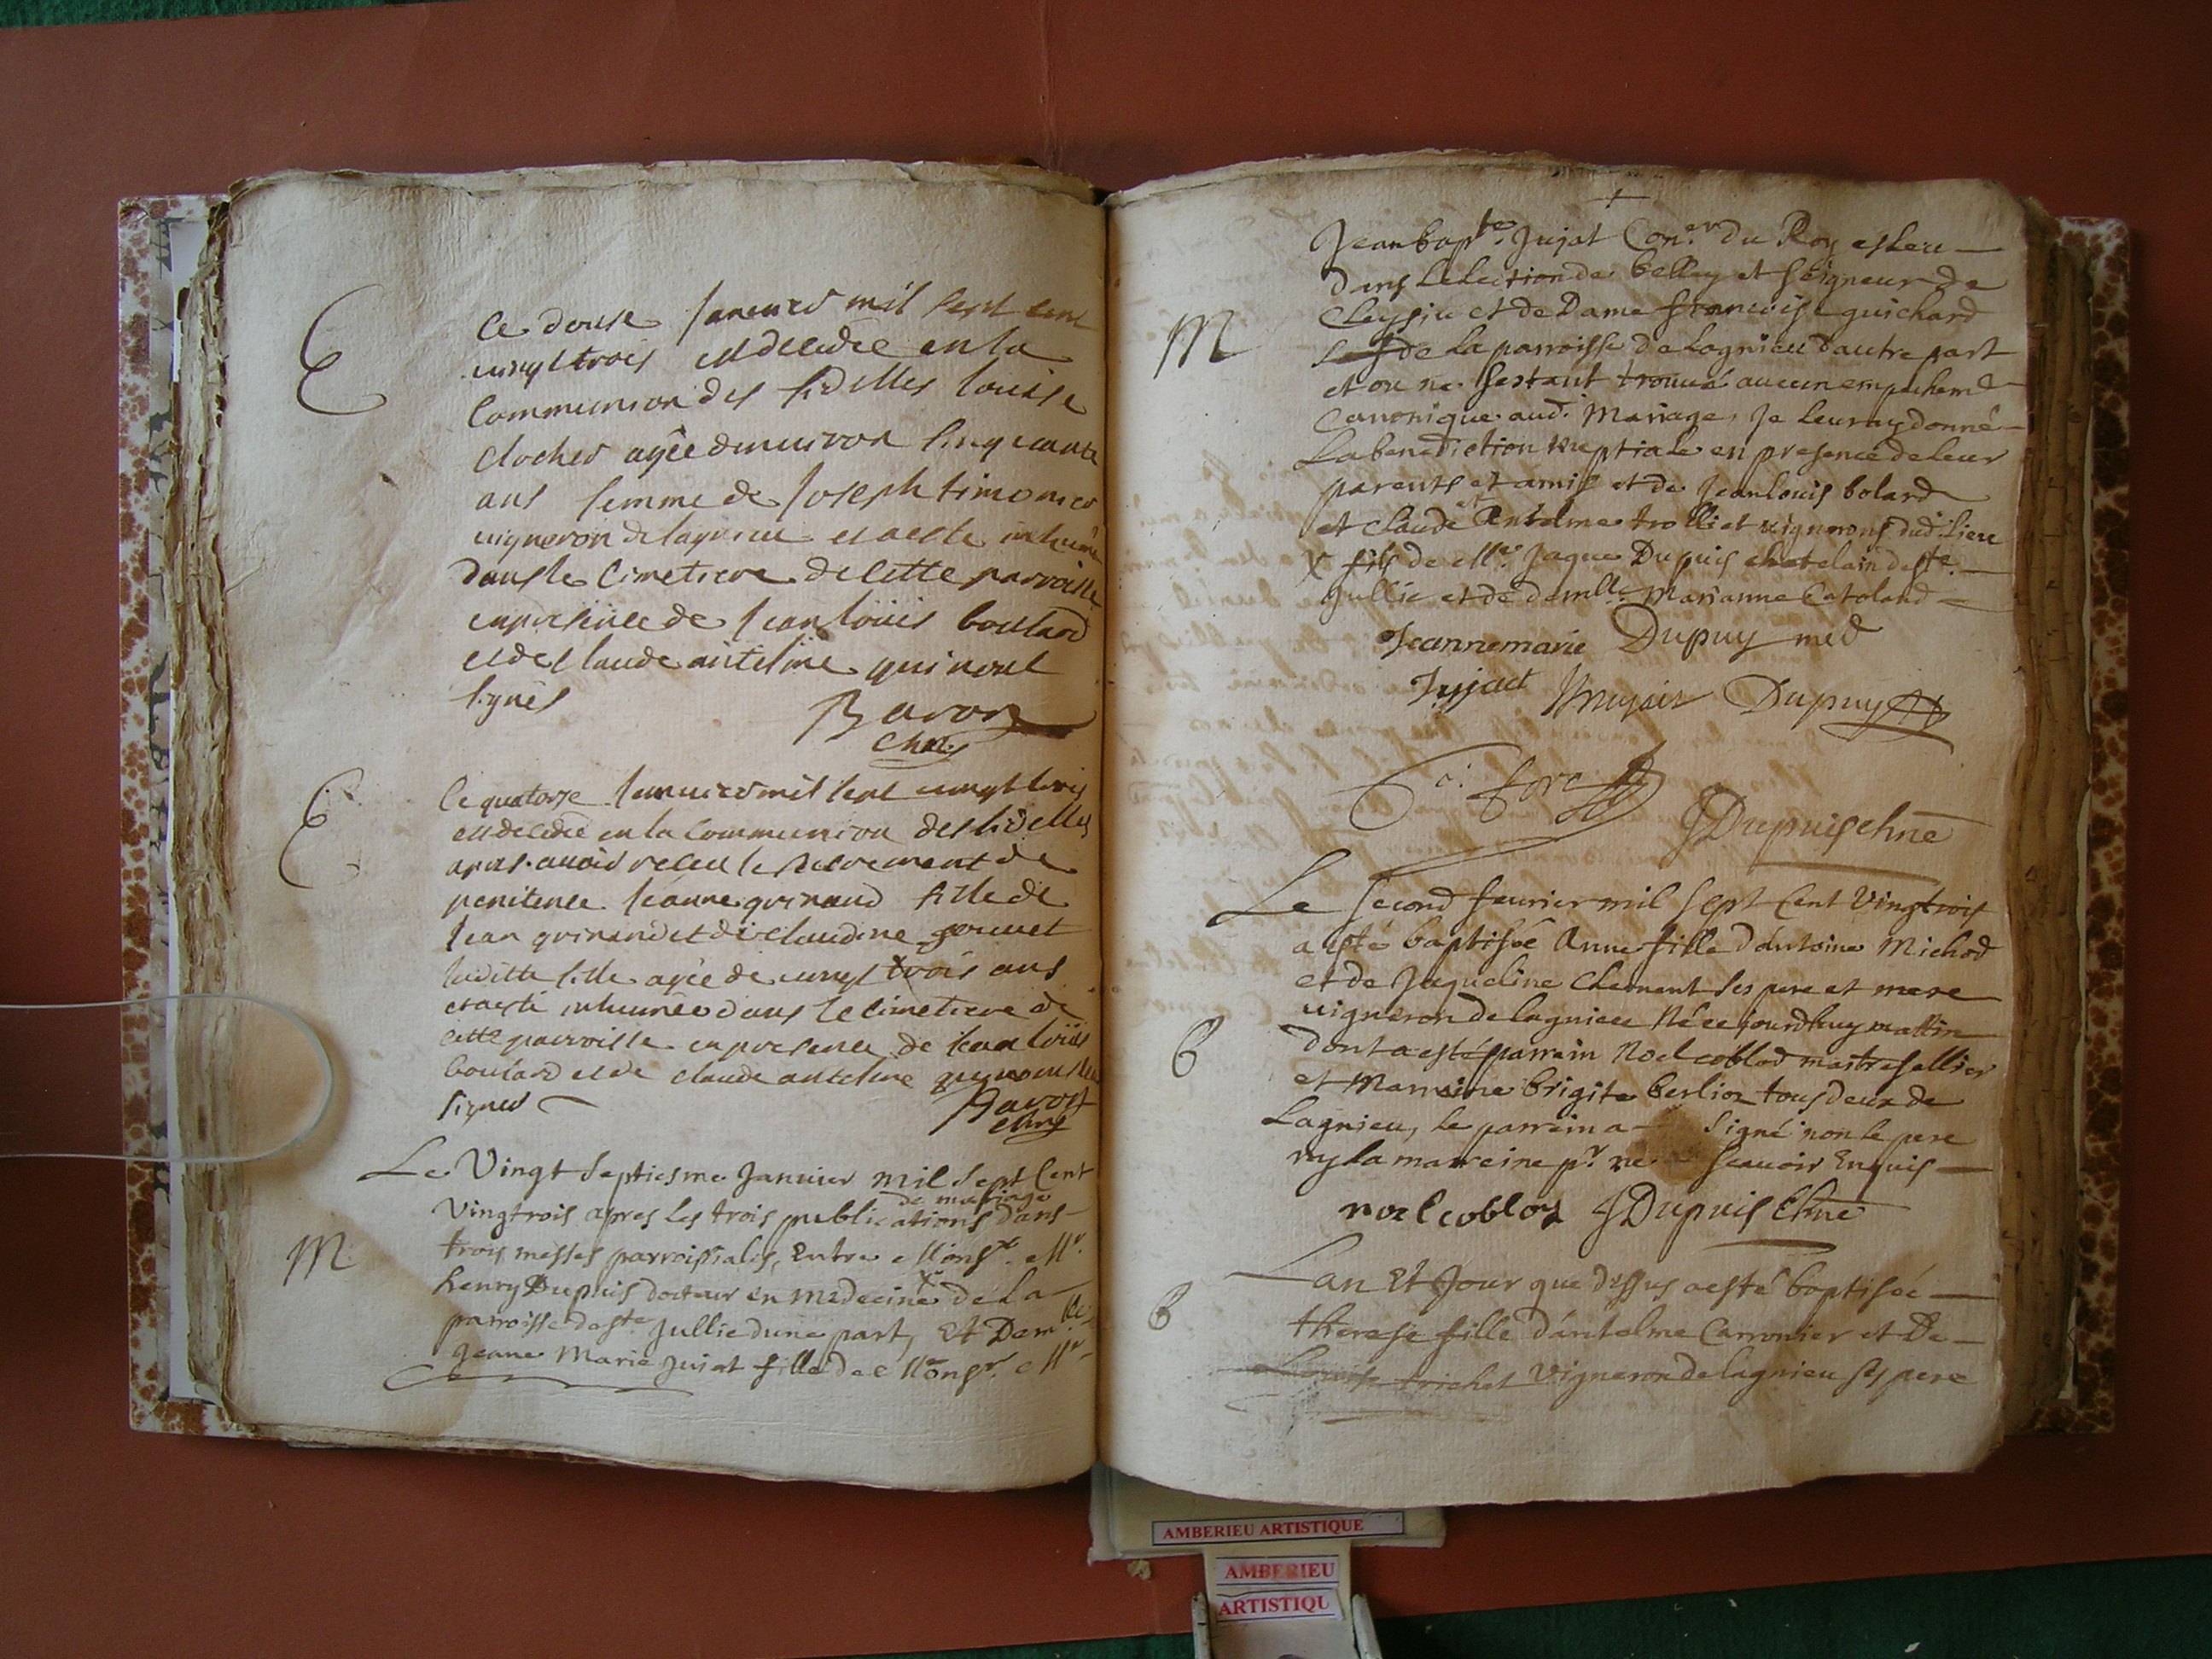 E
Ce douse Januier mil sept cent
uingt trois est decedée en la
Communion des fidelles louise
clocher agée denuiron cinquante
ans femme de Joseph
uigneron de lagnieu et a esté inhumée
dans le cimetiere de cette parroisse
en presence de Jean louis boulard
et de Claude antelme qui n'ont
signés
Bavoz
chne
E
Ce quatorze Januier mil sept uingt trois
est decedée en la Communion des fidelles
apres auoir receu le sacrement de
penitence Jeanne quinaud fille de
Jean quinaud et de Claudine
laditte fille agée de uingt trois ans
et a esté inhumée dans le cimetiere de
cette parroisse en presence de Jean loüis
boulard et de claude antelme
signer
Bavoz
chne
Le Vingt septiesme Januier mil sept Cent
de mariage
Vingtrois apres les trois publications dans
trois messes parroissiales, Entre Monsr. Mr.
M
henry Dupuis docteur en medecine x de La
parroisse de ste Jullie dune part, Et Demlle.
Jeane Marie Juiat fille de Monsr. Mr
Jean bapte. Jujat Coner. du Roy esleu
dans Lelection de belley et seigneur de
Cleysiu et de Dame francoise guichard
M
de La parroisse de Lagnieu d'autre part
et on ne s'estant trouué aucun empechemt
Canonique aud. Mariage, Je leur ay donné
La benediction nuptiale en presence de leur
parents et amis et de Jean louis bolard
et Claude Antelme trolliet uignerons dud. lieu
X fils de Mr. Jaque Dupuis chatelain de ste.
Jullie et de demlle. Marianne Catoland
Jeannemarie Dupuy med
Jujat Dupuy
JDupuis chne
Le second feurier mil sept Cent Vingtrois
a esté baptisée Anne fille d'Antoine Michod
et de Jaqueline Clement ses pere et mere
uigneron de lagnieu Née ce jourdhuy mattin
B
dont a esté parrain Noel coblod maitre sellier
et Marreine brigite berlioz tous deux de
Lagnieu, le parrein a signé non le pere
ny la marreine pr. ne scauoir Enquis
noel coblod JDupuis Chne
Lan Et Jour que dessus a esté baptisée
B
therese fille d'antelme Carronier et De
trichet Vigneron de lagnieu ses pere
AMBERIEU ARTISTIQUE
AMBERIEU
ARTISTIQU